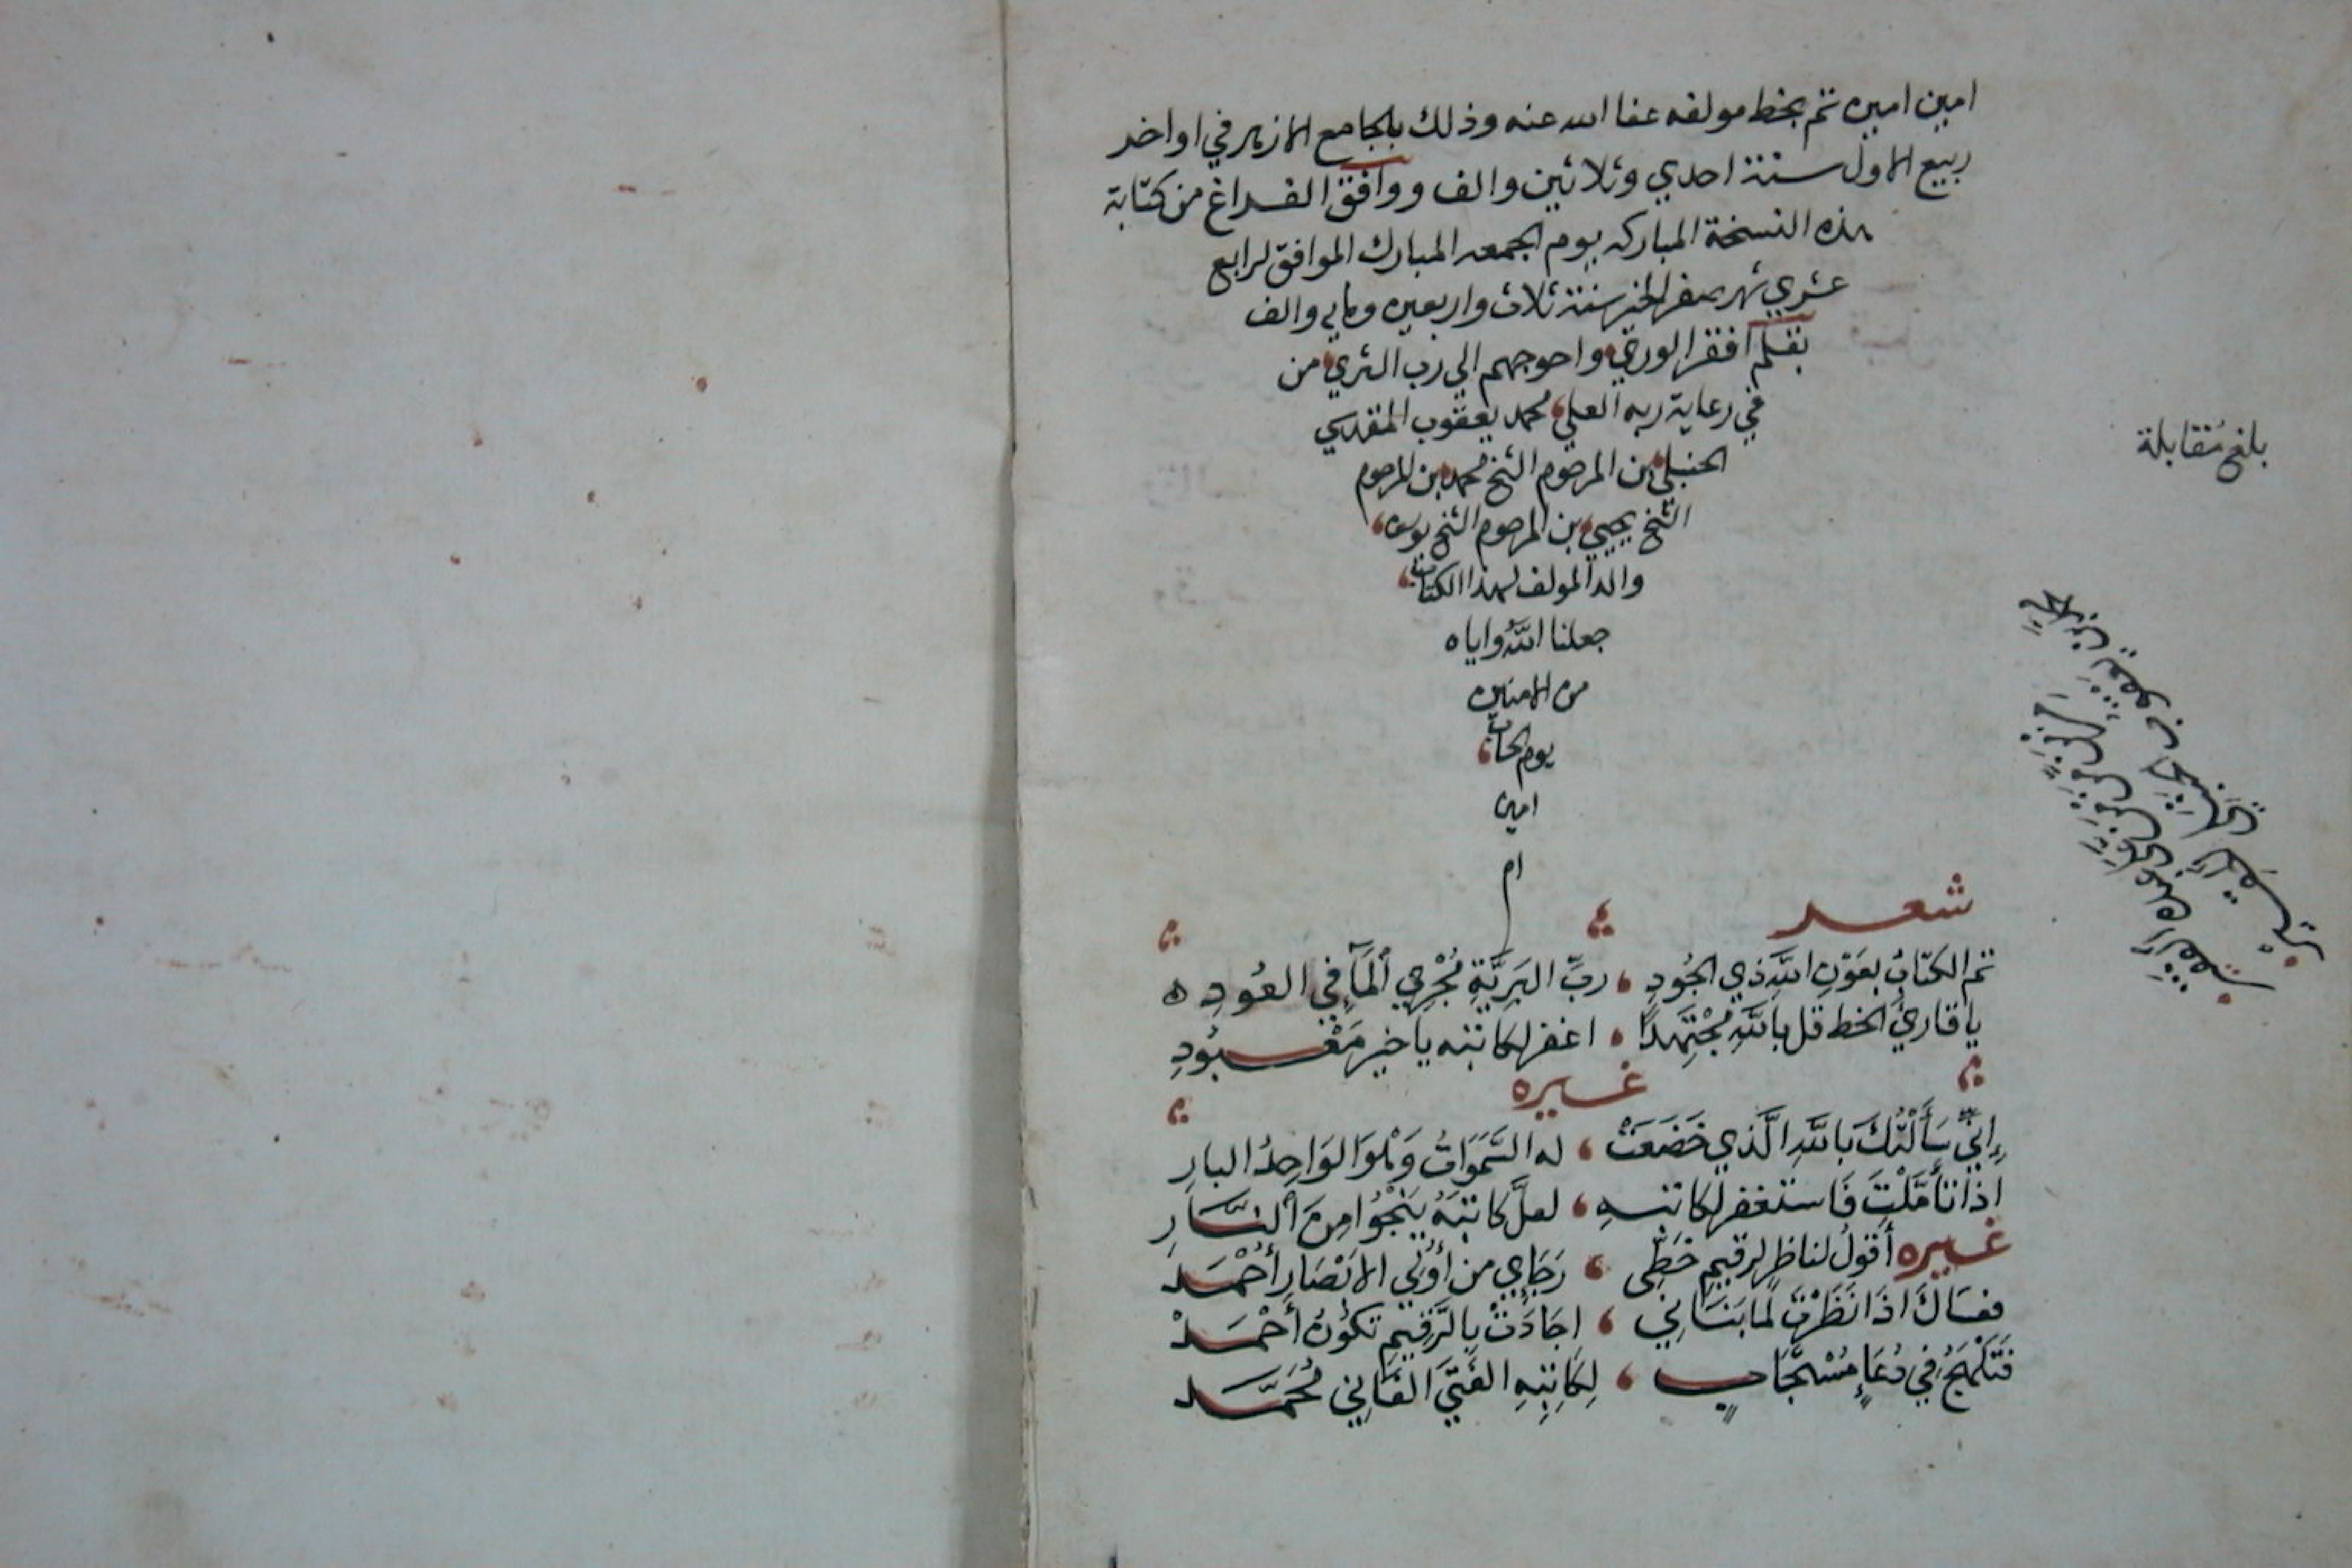 امين امين تم بخط مولفه عفا الله عنه وذلك بالجامع الازهر في اواخر
ربيع الاول سنة احدي وثلاثين والف ووافق الفراغ من كتابة
هذه النسخة المباركه يوم الجمعه المبارك الموافق لرابع
عشري شهر صفر الخير سنة ثلاث واربعين ومايه والف
بقلم افقر الوري واحوجهم الي رب الثري من
في رعاية ربه العلي محمد يعقوب المقدسي
الحنبلي بن المرحوم الشيخ محمد بن المرحوم
الشيخ يحيي بن المرحوم الشيخ يوسف
والد المولف لهذا الكتاب
جعلنا الله واياه
من الامنين
يوم الحساب
امين
ام
بلغ مقابلة
شعر
تم الكتابُ بعَوْنِ اللهِ ذي الجُودِ ، ربِّ البَرِيَّةِ مُجْرِي ألمَآءِ في العُودِ ه
يا قاريَ الخط قل باللهِ مُجْتَهِدًا ، اغفر لكاتبه يا خير مَعْبُودِ
غيره
إنِّي سَأَلْتُكَ بَاللهِ الَّذي خَضَعَتْ ، له السَّمَوَاتُ وَهْوَ الوَاحِدُ البارِ
اذَا تأمَّلْتَ فَاستغفر لكاتبهِ ، لعلَّ كاتبَهُ يَنْجُوا مِنَ ألنَّارِ
غيره أقولُ لناظرٍ لرقيمِ خَطِّى ، رَجَايِ من أوُلي الاَنْصَارِ أحْمَدْ
فعسَاكَ اذَا نَظَرْتَ لمابَنَانِي ، اجَادَتْ بِالرَّقِيمِ تكوُنُ أحْمَدْ
فَتَلْهَجُ في دُعَاءٍ مُسْتَجَابٍ ، لِكاتِبِهِ الفَتَى الفَانِي مُحَمَّد